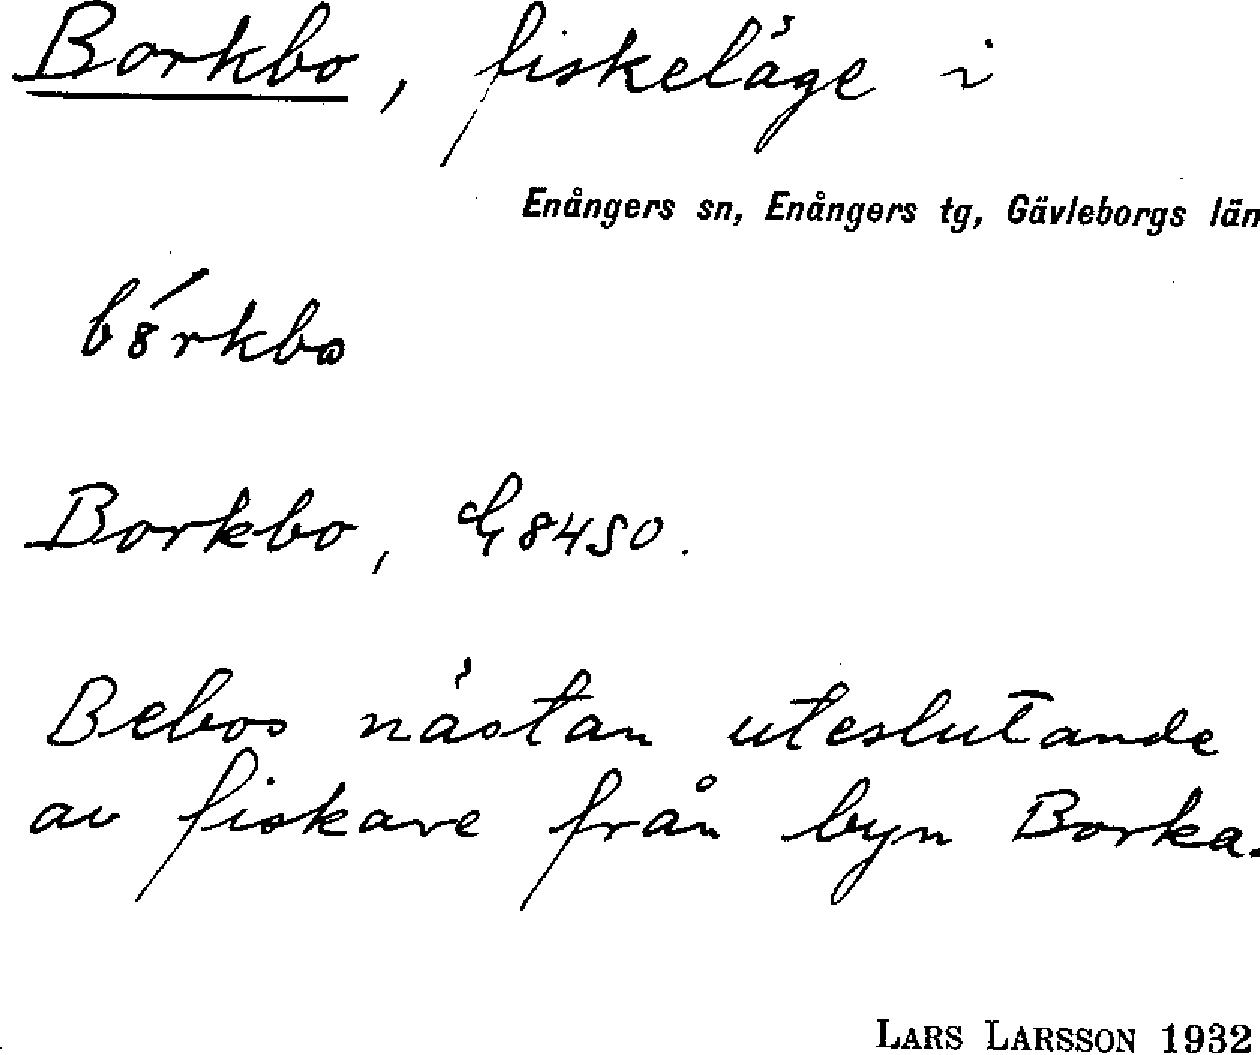 Borkbo, fiskeläge i
Enångers sn, Enångers tg, Gävleborgs län
Borkbo,
Bebos nästan uteslutande
av fiskare från byn Borka.
LARS LARSSON 1932